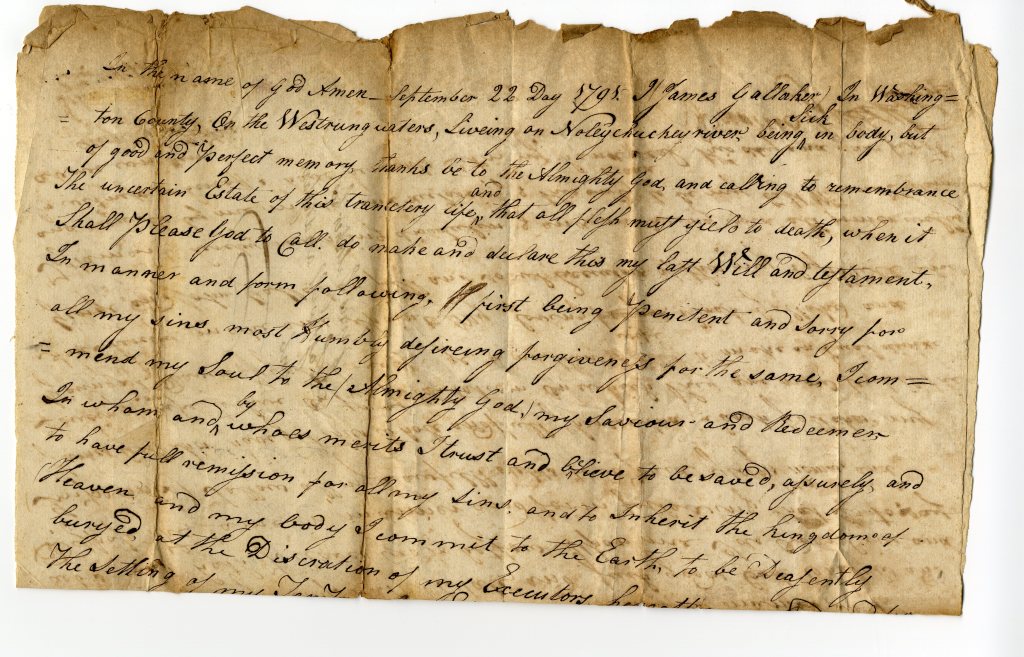 In the name of God Amen – September 22 Day 1795 I James Gallaher In Washing=
= ton County, On the Westrung waters, Liveing on Noleychuckey river being Sick in body, but
of good and Perfect memory, thanks be to the Almighty God, and calling to remembrance
The uncertain Estate of this trancetery life, and that all flesh must yield to death, when it
Shall Please God to Call. do make and declare this my last Will and testament,
In manner and form following, first being Penitent and Sorry for
all my sins, most Humbly desireing forgiveness for the same, I com=
= mend my Soul to the (Almighty God,) my Saviour and Redeemer
In wham and by whoes merits I trust and believe to be saved, assurely and
to have full remission for all my sins. and to Inherit the kingdom of
Heaven and my body I commit to the Earth, to be Deasently
buryed at the Discration of my Executors
The Setling of my